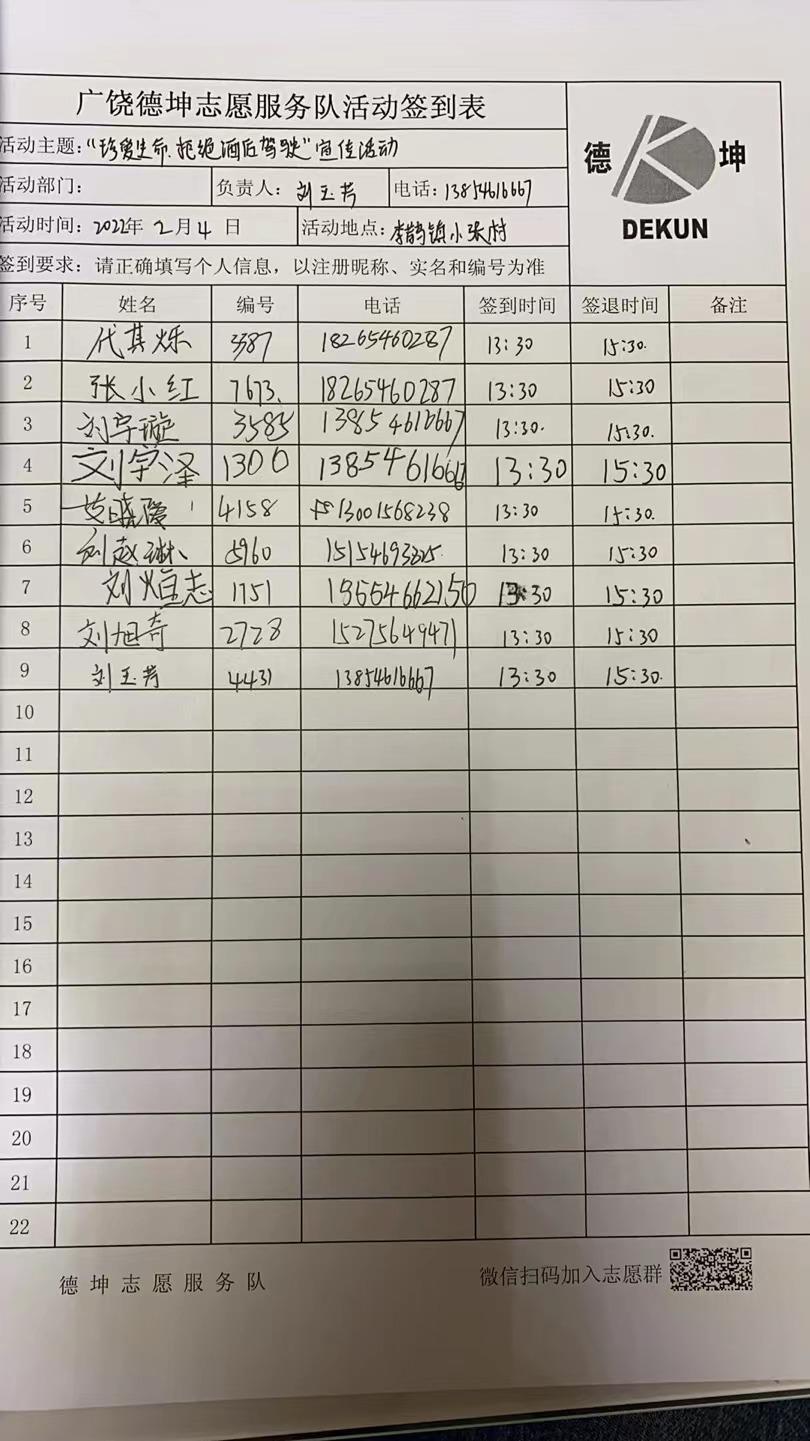 广饶德坤志愿服务队活动签到表
德 坤
DEKUN
活动主题:“珍爱生命.拒绝酒后驾驶”宣传活动
活动部门: 负责人: 刘玉芳 电话: 13854616667
活动时间: 2022年 2月4 日 活动地点: 李鹊镇小张村
签到要求: 请正确填写个人信息, 以注册昵称、实名和编号为准
序号 姓名 编号 电话 签到时间 签退时间 备注
1 代其烁 3387 18265460287 13:30 15:30.
2 张小红 7673. 18265460287 13:30 15:30
3 刘宇璇 3585 13854616667 13:30. 15:30.
4 刘学泽 1300 13854616667 13:30 15:30
5 4158 13001568238 13:30 15:30.
6 刘赵琳 5960 13:30 15:30
7 刘煊志 1751 13:30 15:30
8 刘旭奇 2728 15275649471 13:30 15:30
9 刘玉芳 4431 13854616667 13:30 15:30.
10
11
12
13
14
15
16
17
18
19
20
21
22
德坤志愿服务队 微信扫码加入志愿群